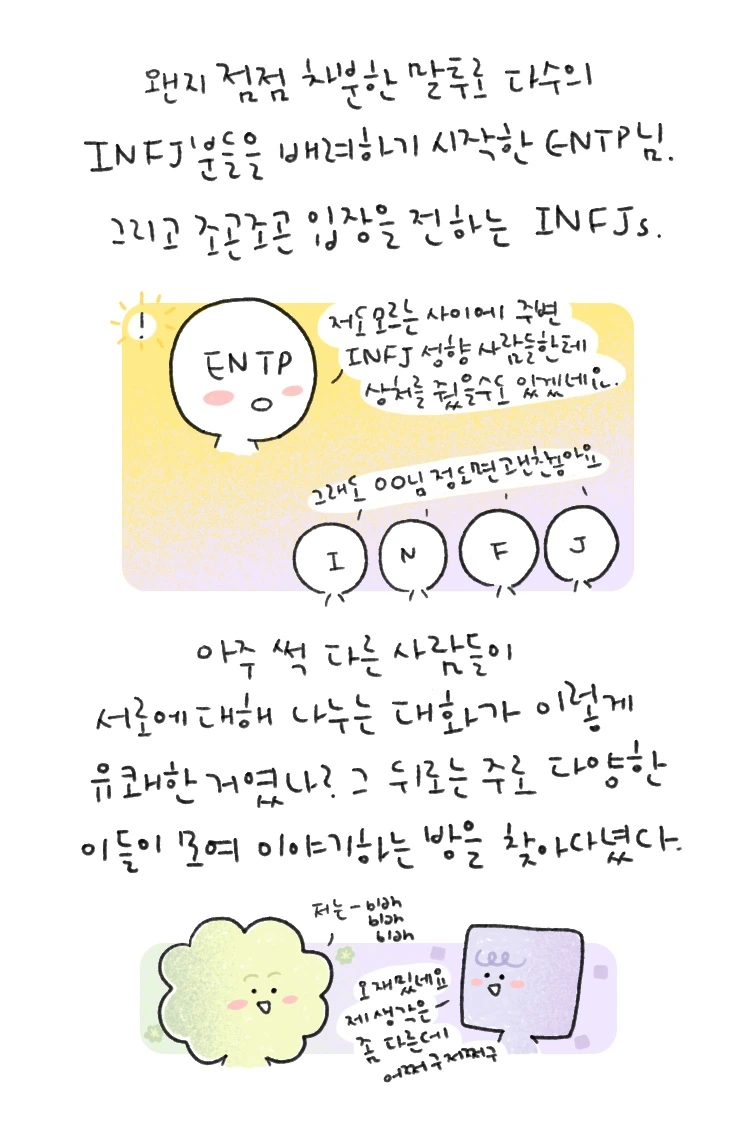 왠지 점점 차분한 말투로 다수의
INFJ분들을 배려하기 시작한 ENTP님.
그리고 조곤조곤 입장을 전하는 INFJs.
!
ENTP
저도 모르는 사이에 주변
INFJ 성향 사람들한테
상처를 줬을수도 있겠네요.
그래도 OO님 정도면 괜찮아요
I N F J
아주 썩 다른 사람들이
서로에 대해 나누는 대화가 이렇게
유쾌한 거였나? 그 뒤로는 주로 다양한
이들이 모여 이야기하는 방을 찾아다녔다.
저는 - blah
blah
blah
오 재밌네요
제 생각은
좀 다른데
어쩌구저쩌구